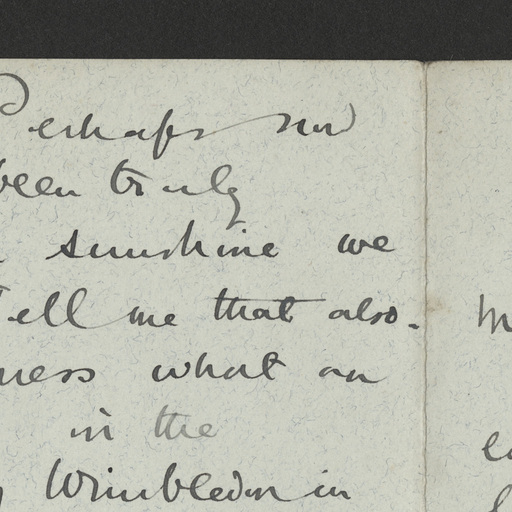 Perhaps
been truly
sunshine we
Tell me that also.
ness what an
in the
Wimbledon in